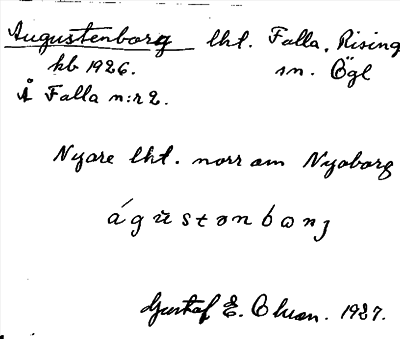 Augustenborg lht. Falla, Rising
kb 1926. sn. Ögl
Å Falla n:r 2.
Nyare lht. norr om Nyaborg
ágùstənbɷrj
Gustaf E. Olsson. 1927.